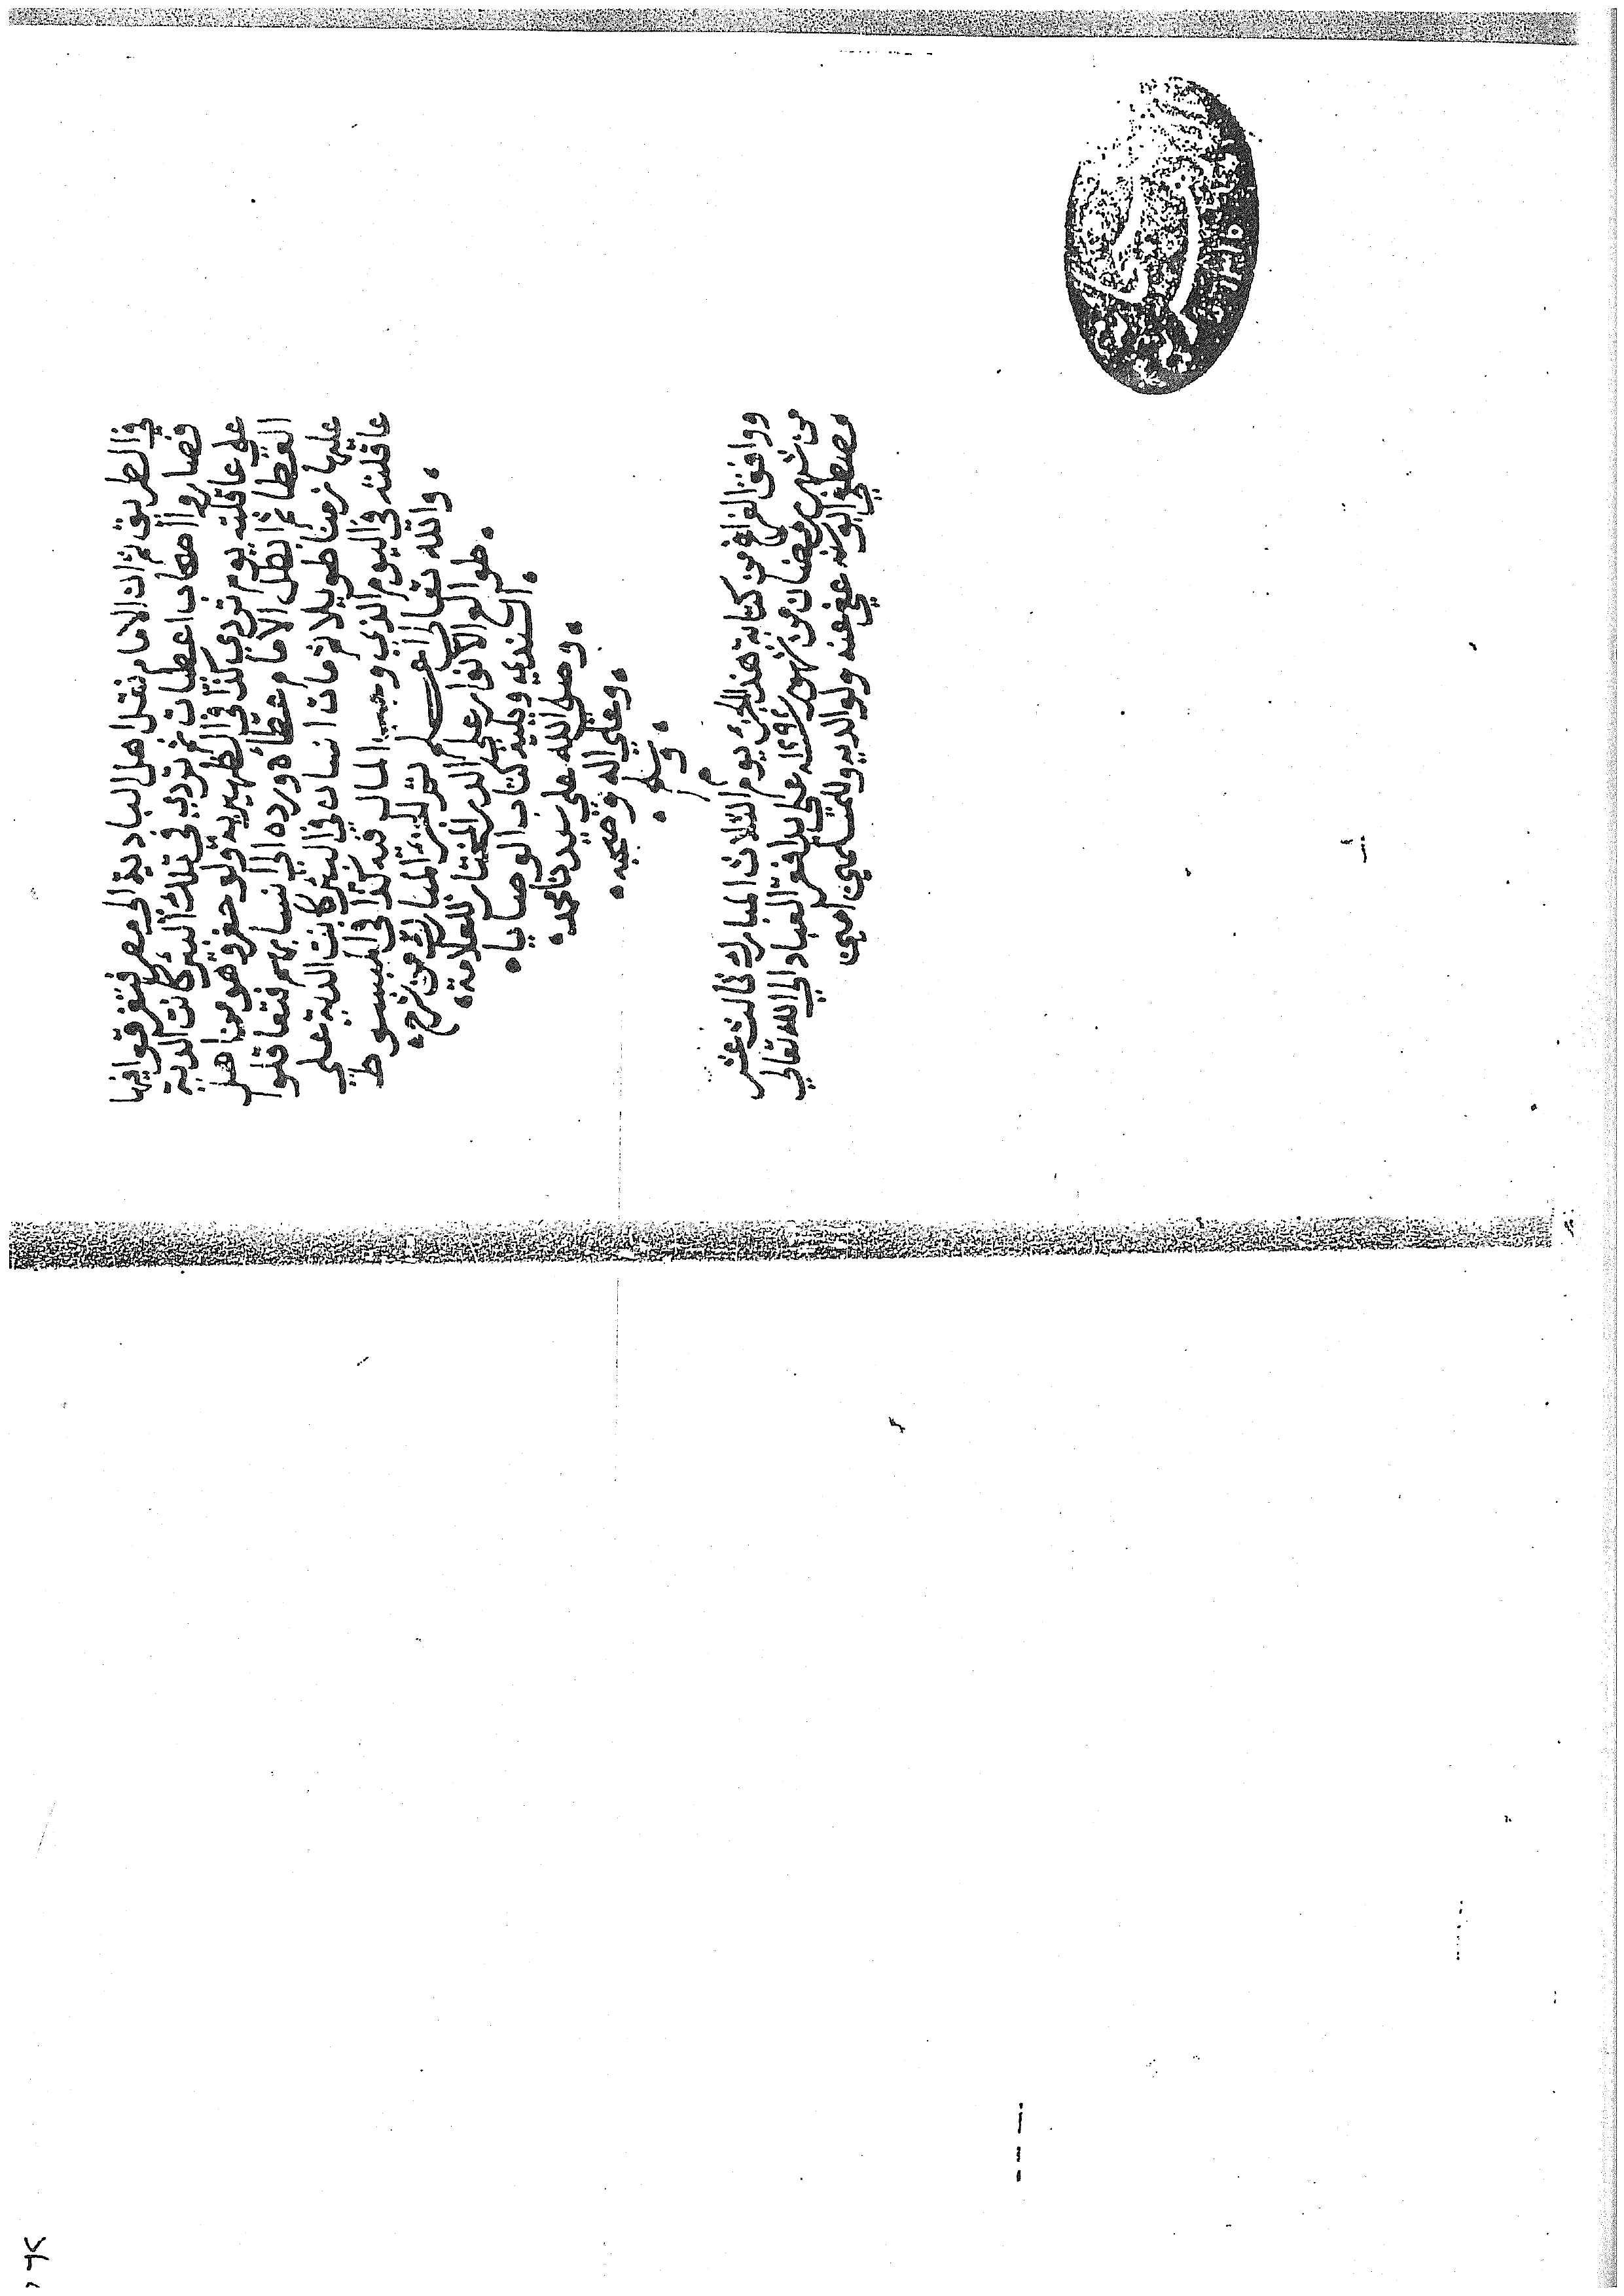 في الطريق ثم ان الامام نقل اهل البادية الى مصر فتفرقوا فيها
فصاروا اصحاب اعطيات ثم تردي في تلك البئر كانت الدية
علي عاقلته يوم تردي كذا في الظهيرية ولو حفر وهو من اهل
العطا ثم ابطل الامام عطاه ورده الى انسابهم فتعاقلوا
عليها زمنا طويلا ثم مات انسان في البئر كانت الدية علي
عاقلته في اليوم الذي وجب المال فيه كذا في المبسوط
والله تعالى اعلم
المباركة من شرح
طوالع الانوار على الدر المختار للعلامة
السندي ويليه كتاب الوصايا
وصلى الله علي سيدنا محمد
وعلي اله وصحبه
وسلم
م
ووافق الفراغ من كتابة هذا الجزء يوم الثلاث المبارك ثالث عشر
من شهر رمضان من شهور ١٢٩٢ علي يد افقر العباد الي الله تعالي
مصطفي ابو عفي عنه ولوالديه وللمسلمين امين